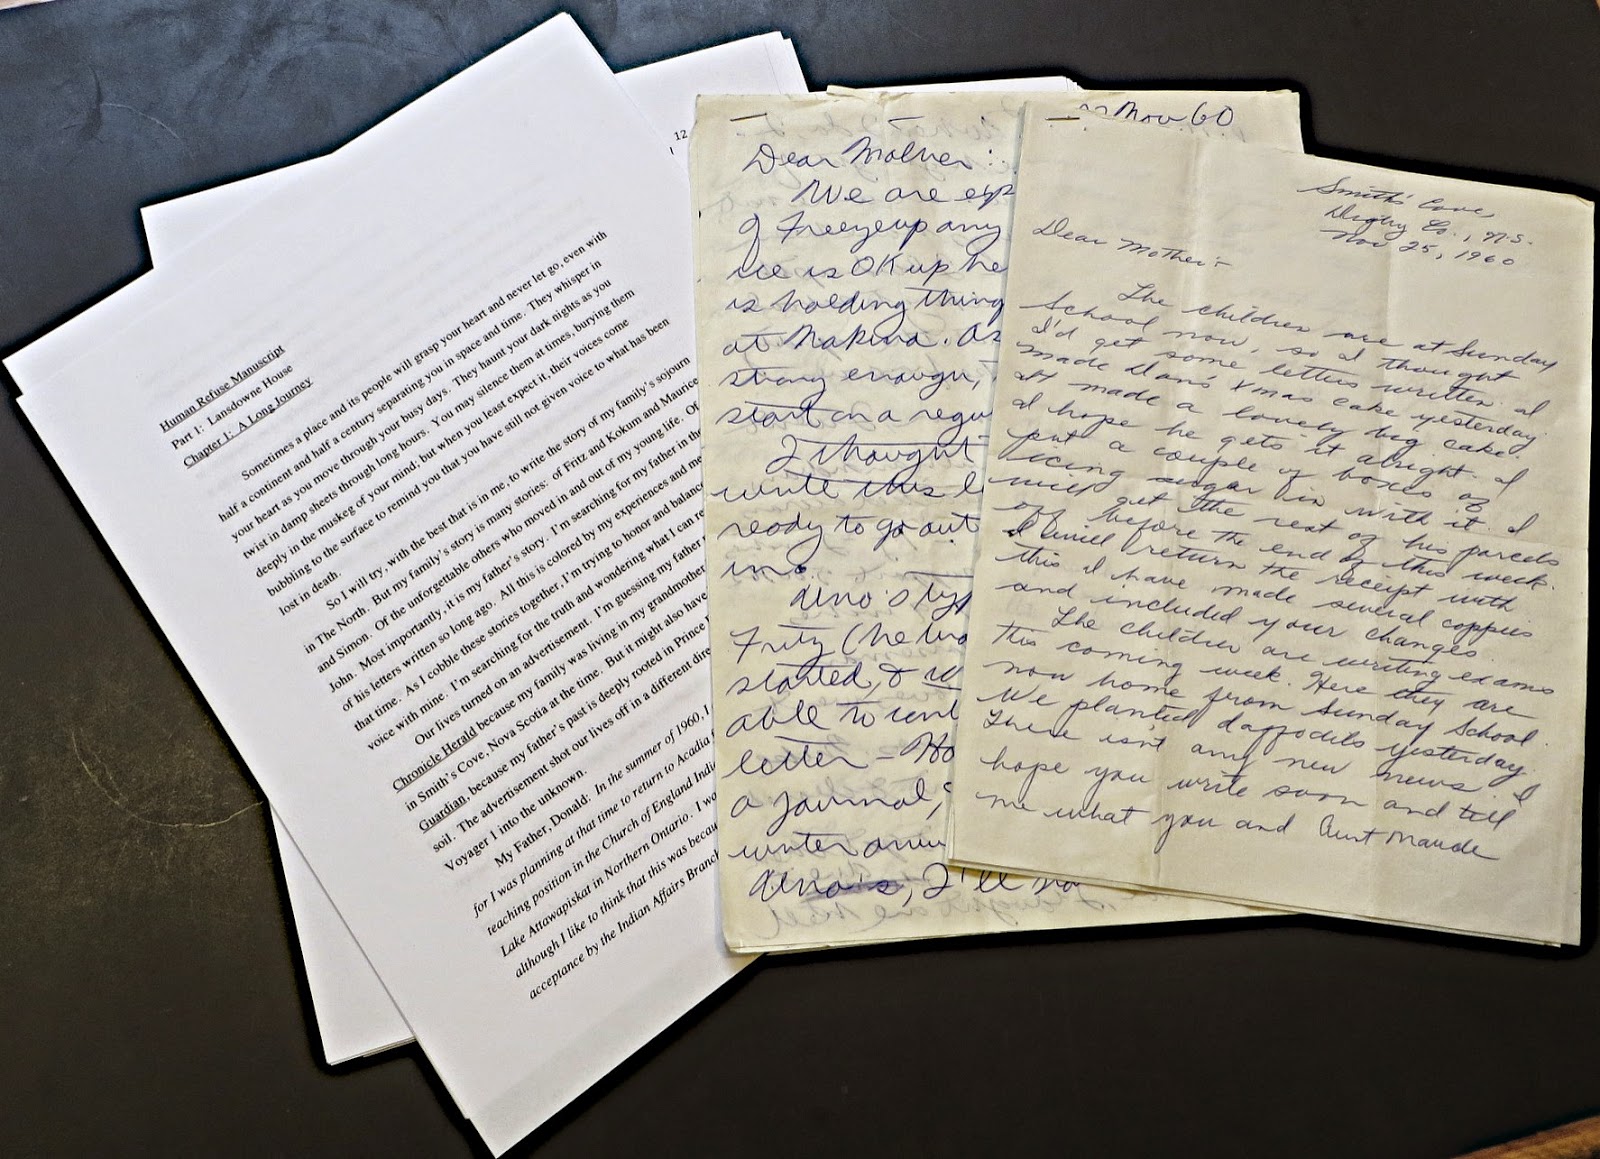 Human Refuse Manuscript
Part 1: Lansdowne House
Chapter 1: A Long Journey
Sometimes a place and its people will grasp your heart and never let go, even with
half a continent and half a century separating you in space and time. They whisper in
your heart as you move through your busy days. They haunt your dark nights as you
twist in damp sheets through long hours. You may silence them at times, burying them
deeply in the muskeg of your mind; but when you least expect it, their voices come
bubbling to the surface to remind you that you have still not given voice to what has been
lost in death.
So I will try, with the best that is in me, to write the story of my family's sojourn
in The North. But my family's story is many stories: of Fritz and Kokum and Maurice
and Simon. Of the unforgettable others who moved in and out of my young life. Of
John. Most importantly, it is my father's story. I'm searching for my father in the
of his letters written so long ago. All this is colored by my experiences and me
that time. As I cobble these stories together, I'm trying to honor and balance
voice with mine. I'm searching for the truth and wondering what I can re
Our lives turned on an advertisement. I'm guessing my father
Chronicle Herald because my family was living in my grandmother
in Smith's Cove, Nova Scotia at the time. But it might also have
Guardian, because my father's past is deeply rooted in Prince
soil. The advertisement shot our lives off in a different dire
Voyager I into the unknown.
My Father, Donald: In the summer of 1960, I
for I was planning at that time to return to Acadia
teaching position in the Church of England Indi
Lake Attawapiskat in Northern Ontario. I wa
although I like to think that this was becau
acceptance by the Indian Affairs Branch
12
Nov 60
Dear Mother:
We are exp
of Freezeup any
ice is OK up he
is holding thing
at Nakina. As
strong enough,
start on a regu
I thought
write this l
ready to go out
in.
Uno's typ
Fritz (he wo
started, & w
able to cont
letter – Ho
a journal,
winter
Uno's, I'll
Smith's Cove,
Digby Co., N.S.
Nov 25, 1960
Dear Mother:-
The children are at Sunday
School now, so I thought
I'd get some letters written. I
made Dons Xmas cake yesterday.
It made a lovely big cake.
I hope he gets it alright. I
put a couple of boxes of
icing sugar in with it. I
will get the rest of his parcels
off before the end of this week.
I will return the receipt with
this. I have made several coppies
and included your changes.
The children are writing exams
this coming week. Here they are
now home from Sunday School.
We planted daffodils yesterday.
There isn't any new news. I
hope you write soon and tell
me what you and Aunt Maude